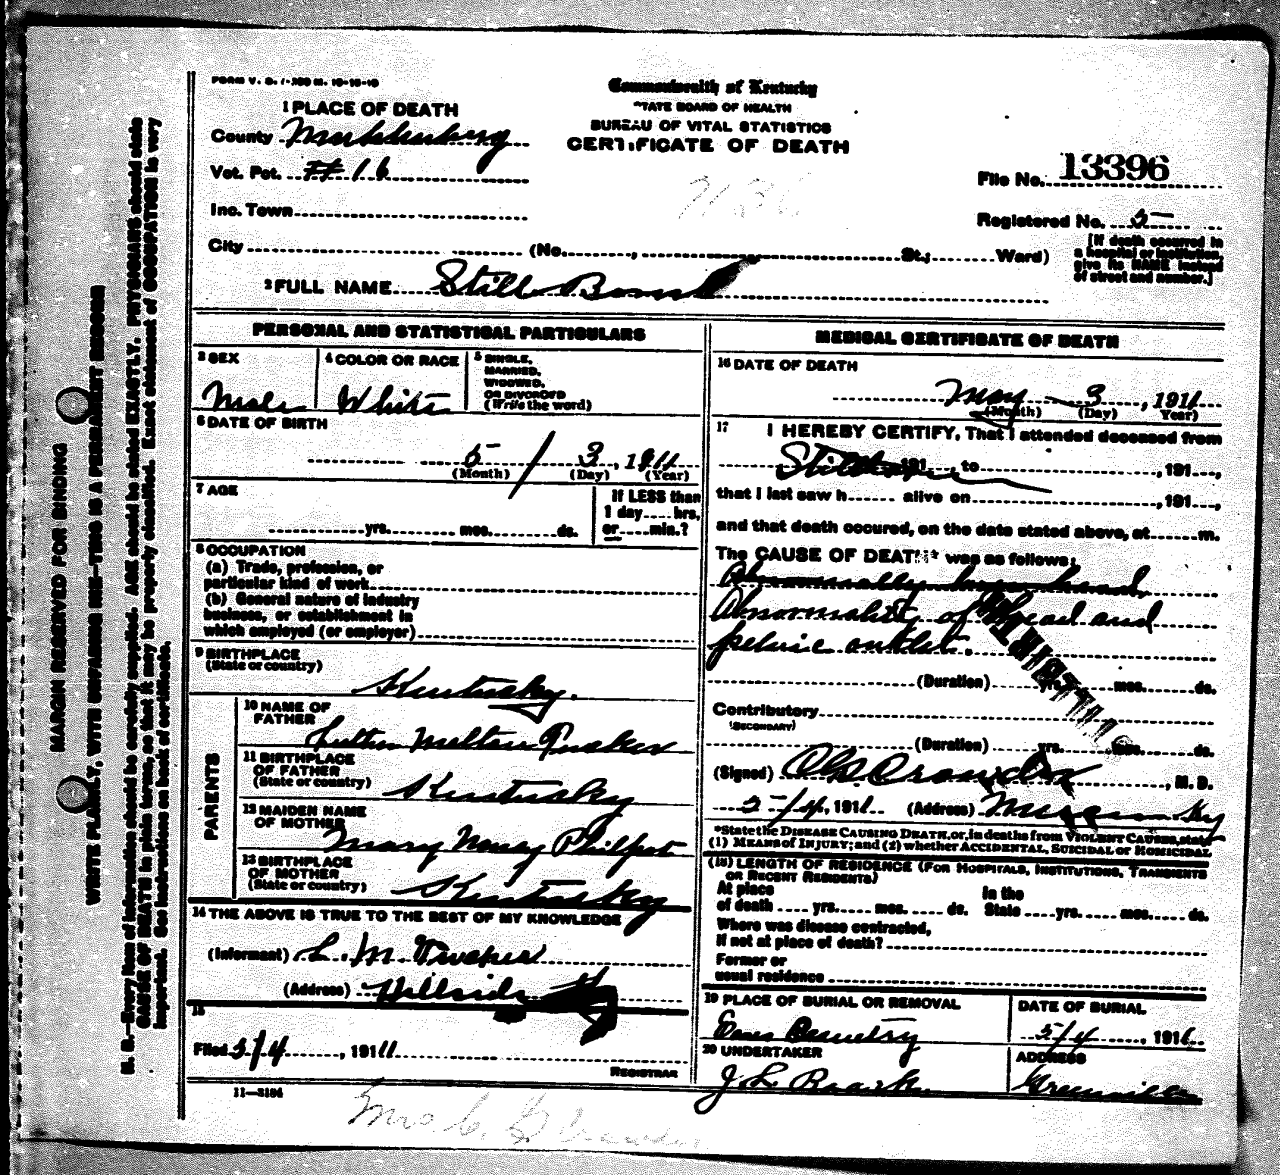 FORM V. S. 1-300 M. 10-10-10
Commonwealth of Kentucky
STATE BOARD OF HEALTH
BUREAU OF VITAL STATISTICS
CERTIFICATE OF DEATH
1 PLACE OF DEATH
County Muhlenberg
Vot. Pct. # 16
Inc. Town
City (No. , St.; Ward)
File No. 13396
Registered No. 5
[If death occurred in
a hospital or institution,
give its NAME instead
of street and number.]
2 FULL NAME Still Born
PERSONAL AND STATISTICAL PARTICULARS
3 SEX
Male
4 COLOR OR RACE
White
5 SINGLE,
MARRIED,
WIDOWED,
OR DIVORCED
(Write the word)
6 DATE OF BIRTH
5 / 3, 1911
(Month) (Day) (Year)
7 AGE
yrs. mos. ds.
If LESS than
1 day hrs,
or min.?
8 OCCUPATION
(a) Trade, profession, or
particular kind of work
(b) General nature of industry
business, or establishment in
which employed (or employer)
9 BIRTHPLACE
(State or country)
Kentucky.
PARENTS
10 NAME OF
FATHER
Luther Melton
11 BIRTHPLACE
OF FATHER
(State or country)
Kentucky
12 MAIDEN NAME
OF MOTHER
Mary Philpot
13 BIRTHPLACE
OF MOTHER
(State or country)
Kentucky
14 THE ABOVE IS TRUE TO THE BEST OF MY KNOWLEDGE
(Informant) L. M.
(Address) Hillside
15
Filed 5/4, 1911
REGISTRAR
11—3184
MEDICAL CERTIFICATE OF DEATH
16 DATE OF DEATH
May 3, 1911
(Month) (Day) Year)
17 I HEREBY CERTIFY, That I attended deceased from
191 , to , 191 ,
that I last saw h alive on , 191 ,
and that death occured, on the date stated above, at m.
The CAUSE OF DEATH* was as follows:
Abnormally head,
Abnormality of head and
pelvic outlet.
(Duration) yrs. mos. ds.
Contributory
(SECONDARY)
(Duration) yrs. mos. ds.
(Signed) , M. D.
5/4, 1911 (Address) Ky
*State the DISEASE CAUSING DEATH, or, in deaths from VIOLENT CAUSES, state
(1) MEANS OF INJURY; and (2) whether ACCIDENTAL, SUICIDAL or HOMICIDAL
(18) LENGTH OF RESIDENCE (FOR HOSPITALS, INSTITUTIONS, TRANSIENTS
OR RECENT RESIDENTS)
At place In the
of death yrs. mos. ds. State yrs. mos. ds.
Where was disease contracted,
if not at place of death?
Former or
usual residence
19 PLACE OF BURIAL OR REMOVAL
Cemetery
DATE OF BURIAL
5/4, 1911
20 UNDERTAKER
J L Roark
ADDRESS
Greenville
MARGIN RESERVED FOR BINDING
WRITE PLAINLY, WITH UNFADING INK—THIS IS A PERMANENT RECORD
N. B.—Every item of information should be carefully supplied. AGE should be stated EXACTLY. PHYSICIANS should state
CAUSE OF DEATH in plain terms, so that it may be properly classified. Exact statement of OCCUPATION is very
important. See instructions on back of certificate.